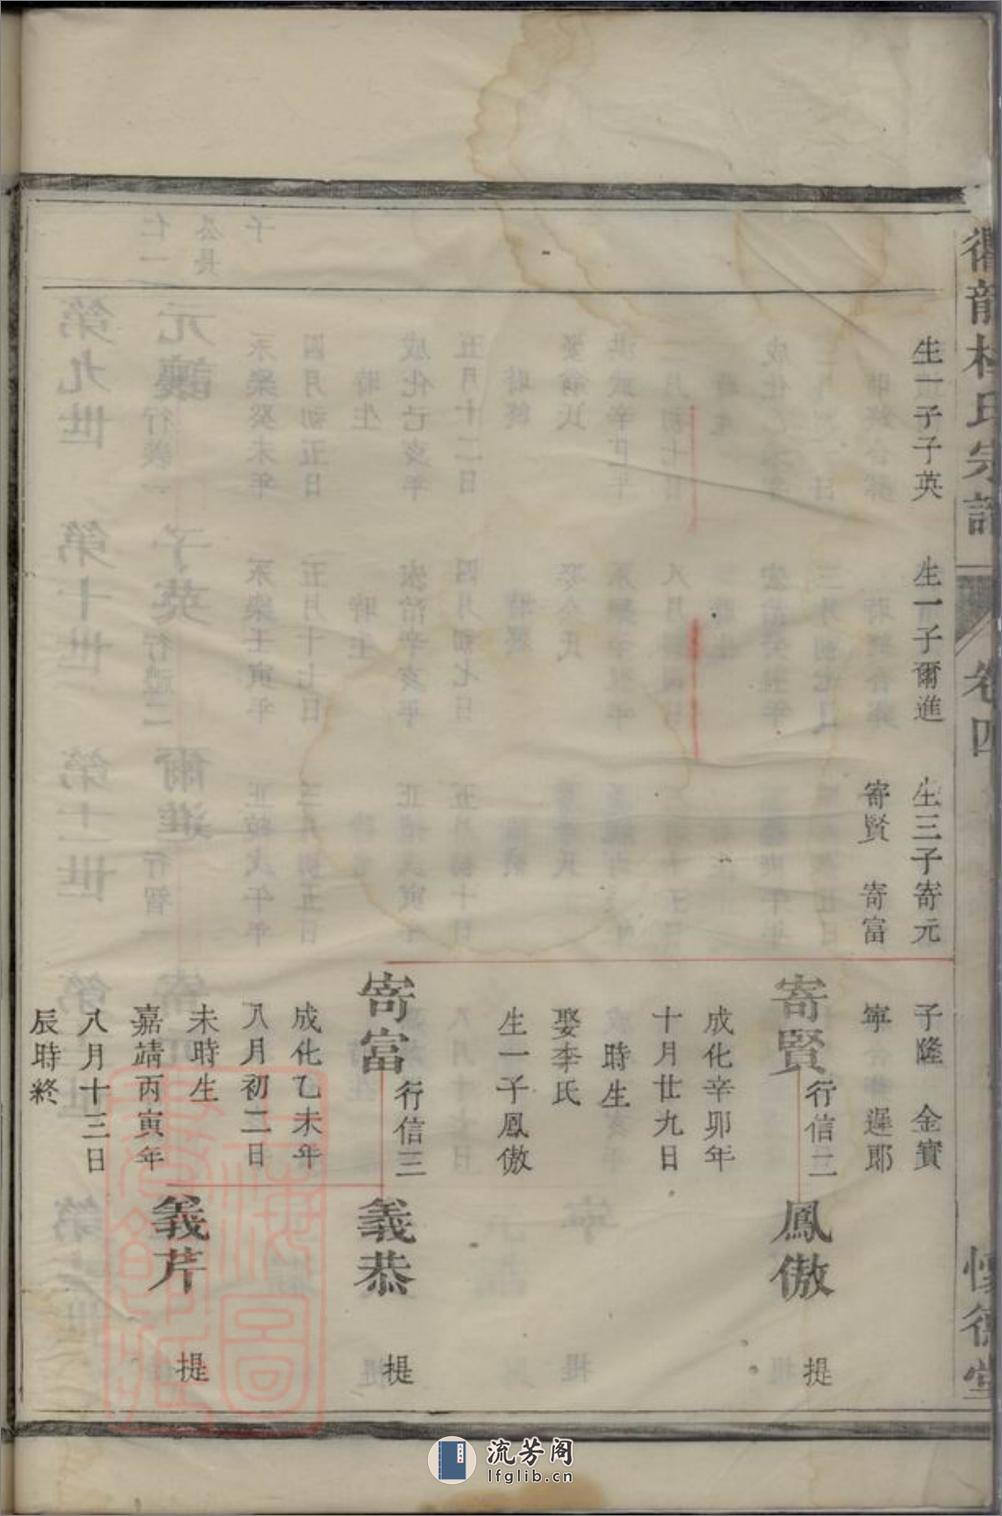 龍 氏宗譜
卷四
德堂
生一子子英
生一子爾進
生三子寄元
寄賢 寄富
子隆 金寶
寧 遲郎
寄賢 行信二
成化辛卯年
十月廿九日
時生
娶李氏
生一子鳳傲
寄富 行信三
成化乙未年
八月初二日
未時生
嘉靖丙寅年
八月十三日
辰時終
鳳傲 提
義恭 提
義芹 提
上海圖書館藏
流芳阁
lfglib.cn